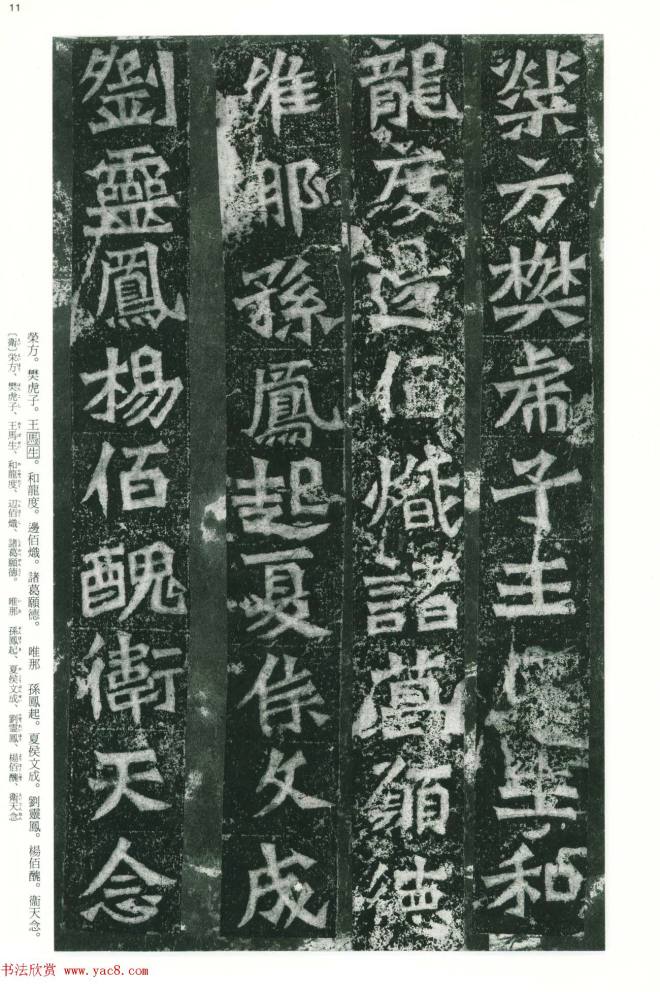 11
榮方樊虎子王馬生和
龍度邊佰熾諸葛願德
唯那孫鳳起夏侯文成
劉靈鳳楊佰醜衛天念
榮方。樊虎子。王馬生。和龍度。邊佰熾。諸葛願德。 唯那 孫鳳起。夏侯文成。劉靈鳳。楊佰醜。衞天念。
〔衛〕栄方、樊虎子、王馬生、和龍度、辺佰熾、諸葛願徳。 唯那 孫鳳起、夏侯文成、劉霊鳳、楊佰醜、衛天念
书法欣赏 www.yac8.com